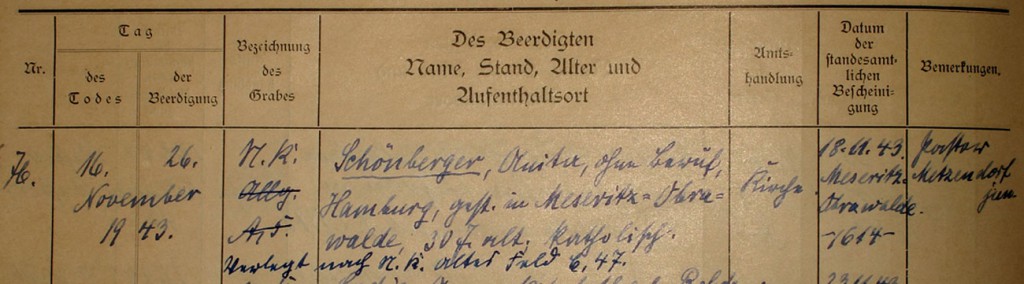 Nr.
Tag
des Todes
der Beerdigung
Bezeichnung des Grabes
Des Beerdigten
Name, Stand, Alter und
Aufenthaltsort
Amts-
handlung
Datum
der
standesamt-
lichen
Bescheini-
gung
Bemerkungen.
76.
16. 26.
November
1943.
N. K.
Allg.
A, F.
Schönberger, Anita, ohne Beruf,
Hamburg, gest. in Meseritz=Obra-
walde, 30 J. alt. katholisch.
Verlegt nach N. K. altes Feld C. 47.
Kirche
18.11.43.
Meseritz-
Obrawalde.
-1614-
Pastor
Metzendorf
jun.